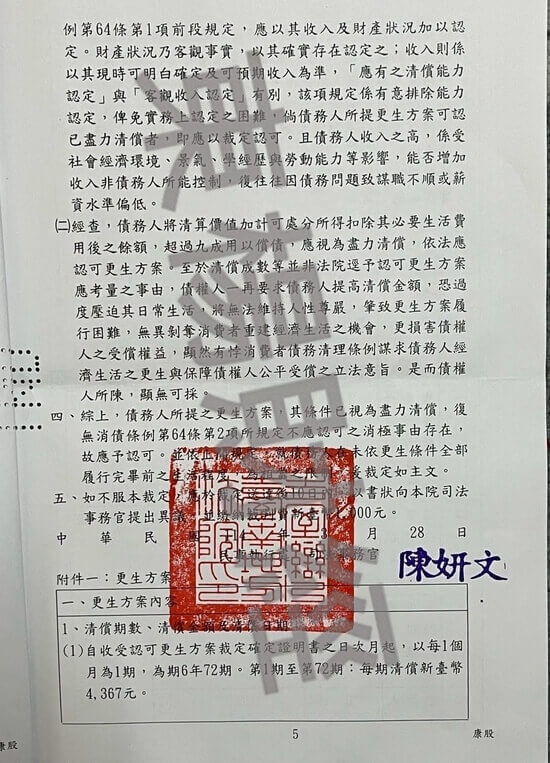 例第64條第1項前段規定，應以其收入及財產狀況加以認
定。財產狀況乃客觀事實，以其確實存在認定之；收入則係
以其現時可明白確定及可預期收入為準，「應有之清償能力
認定」與「客觀收入認定」有別，該項規定係有意排除能力
認定，俾免實務上認定之困難，倘債務人所提更生方案可認
已盡力清償者，即應以裁定認可。且債務人收入之高，係受
社會經濟環境、景氣、學經歷與勞動能力等影響，能否增加
收入非債務人所能控制，復往往因債務問題致謀職不順或薪
資水準偏低。
㈡經查，債務人將清算價值加計可處分所得扣除其必要生活費
用後之餘額，超過九成用以償債，應視為盡力清償，依法應
認可更生方案。至於清償成數等並非法院逕予認可更生方案
應考量之事由，債權人一再要求債務人提高清償金額，恐過
度壓迫其日常生活，將無法維持人性尊嚴，肇致更生方案履
行困難，無異剝奪消費者重建經濟生活之機會，更損害債權
人之受償權益，顯然有悖消費者債務清理條例謀求債務人經
濟生活之更生與保障債權人公平受償之立法意旨。是而債權
人所陳，顯無可採。
四、綜上，債務人所提之更生方案，其條件已視為盡力清償，復
無消債條例第64條第2項所規定不應認可之消極事由存在，
故應予認可。並依上開規定，就債務人在未依更生條件全部
履行完畢前之生活程度，裁定如主文。
五、如不服本裁定，應於裁定以書狀向本院司法
事務官提出異議，並繳納裁判費新臺幣1,000元。
中 華 民 國 月 28 日
民事執行處 司法事務官 陳妍文
附件一：更生方案
一、更生方案內容
1、清償期數、清償金額及清償日期
(1)自收受認可更生方案裁定確定證明書之日次月起，以每1個
月為1期，為期6年72期。第1期至第72期：每期清償新臺幣
4,367元。
5
康股
康股